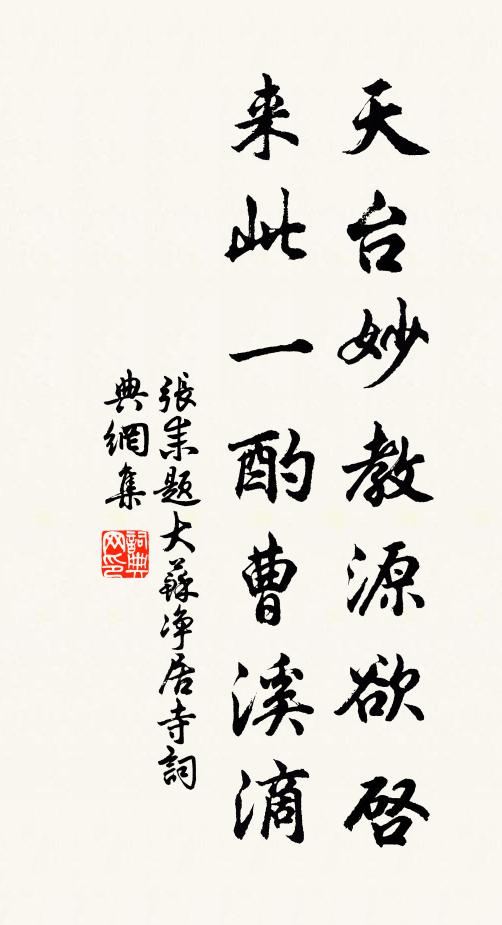 天台妙教源欲啓
来此一酌曹溪滴
張耒題大蘇净居寺詞
典網集
詞典
网印